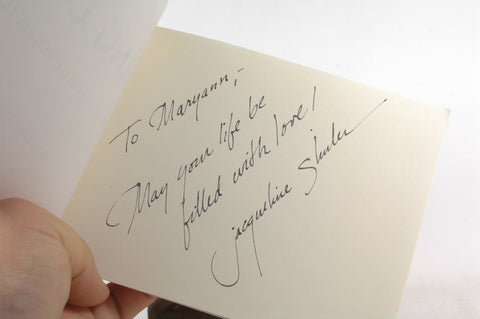 To Maryann,-
May your life be
filled with love!
Jacqueline Shuler